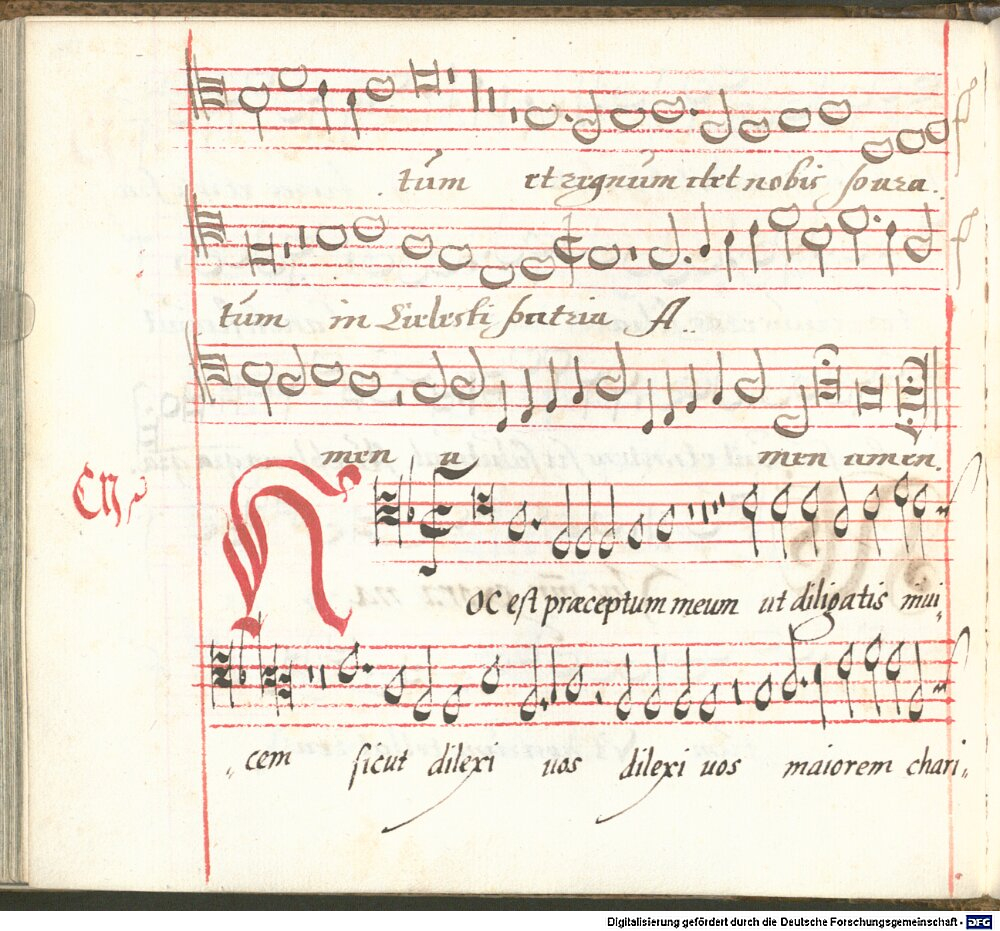 tum et regnum det nobis
tum in Coelesti patria A.
men a men amen.
HOC est præceptum meum ut diligatis inui„
„cem sicut dilexi uos dilexi uos maiorem chari„
Digitalisierung gefördert durch die Deutsche Forschungsgemeinschaft - DFG